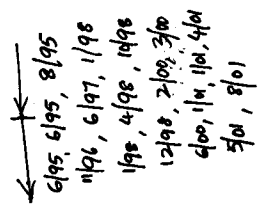 6/95, 6/95, 8/95
11/96, 6/97, 1/98
1/98, 4/98, 10/98
12/98, 2/00, 3/00
6/00, 1/01, 1/01, 4/01
5/01, 8/01